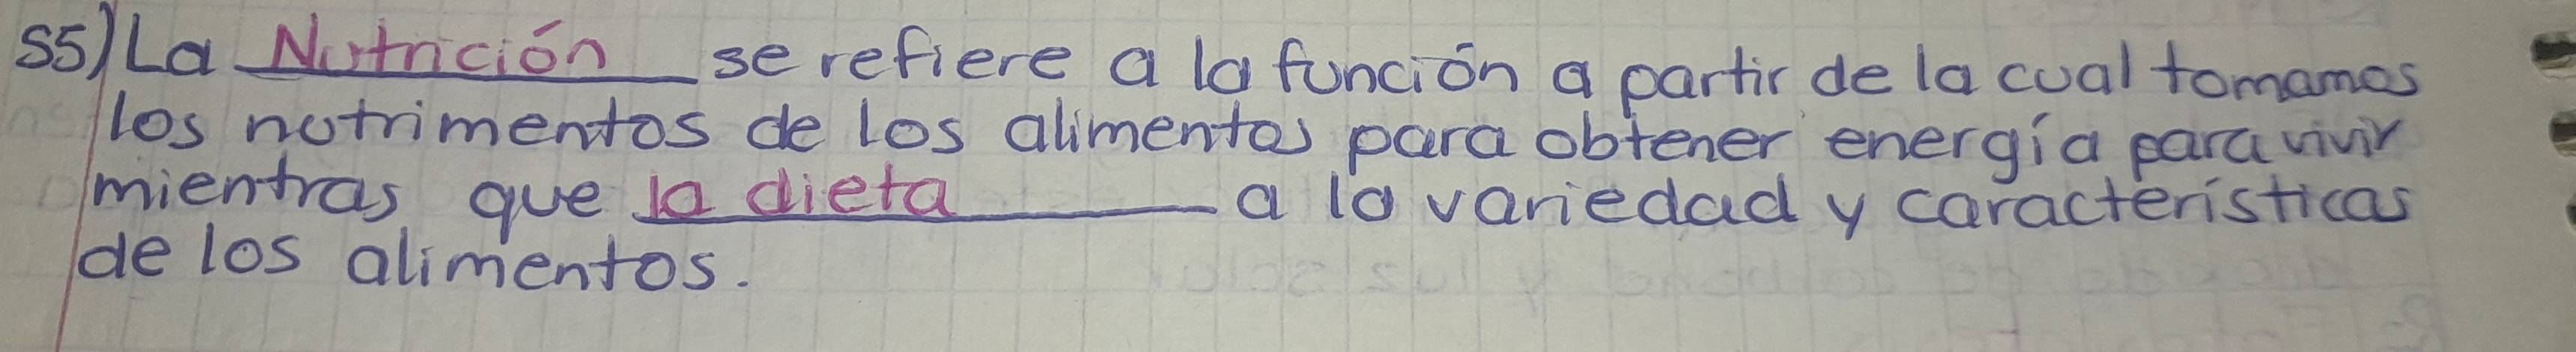 55) La Nutrición se refiere a la función a partir de la cual tomamos
los nutrimentos de los alimentos para obtener energía para vivir
mientras que la dieta a la variedad y características
de los alimentos.